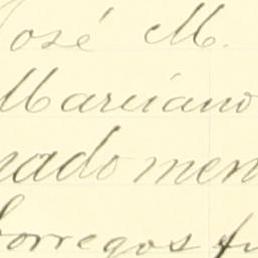 José M.
Marciano
nado men
orregos fu